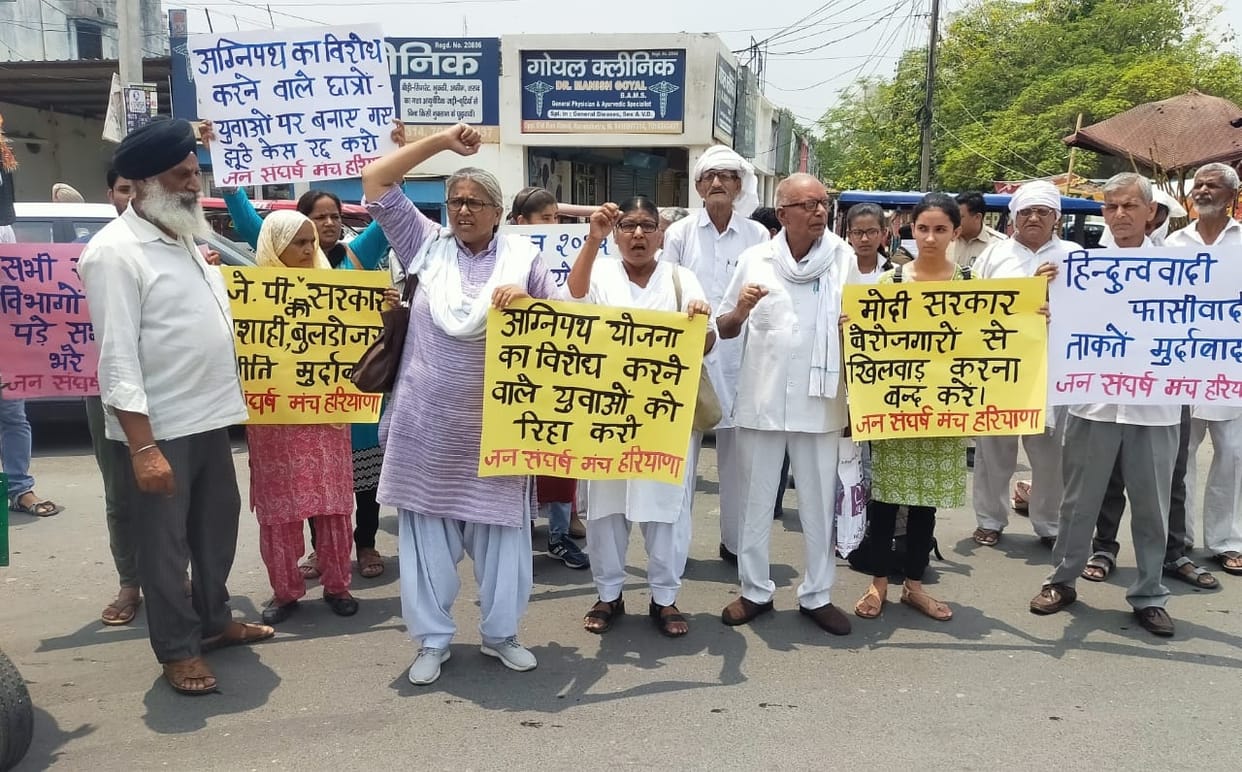 अग्निपथ का विरोध
करने वाले छात्रो-
युवाओ पर बनाए गए
झूठे केस रद्द करो
जन संघर्ष मंच हरि
Regd. No. 20886
निक
गोयल क्लीनिक
DR. MANISH GOYAL
B.A.M.S.
General Physician & Ayurvedic Specialist
Spl. in : General Diseases, Sex & V.D.
सभी
विभागों
पड़े
भरे
जन संघर्ष
जे. पी. सरकार
की
शाही, बुलडोजर
नीति मुर्दाबाद
संघर्ष मंच हरियाणा
अग्निपथ योजना
का विरोध करने
वाले युवाओं को
रिहा करो
जन संघर्ष मंच हरियाणा
मोदी सरकार
बेरोजगारों से
खिलवाड़ करना
बन्द करें।
जन संघर्ष मंच हरियाणा
हिन्दुत्ववादी
फासीवादी
ताकतें मुर्दाबाद
जन संघर्ष मंच हरिय